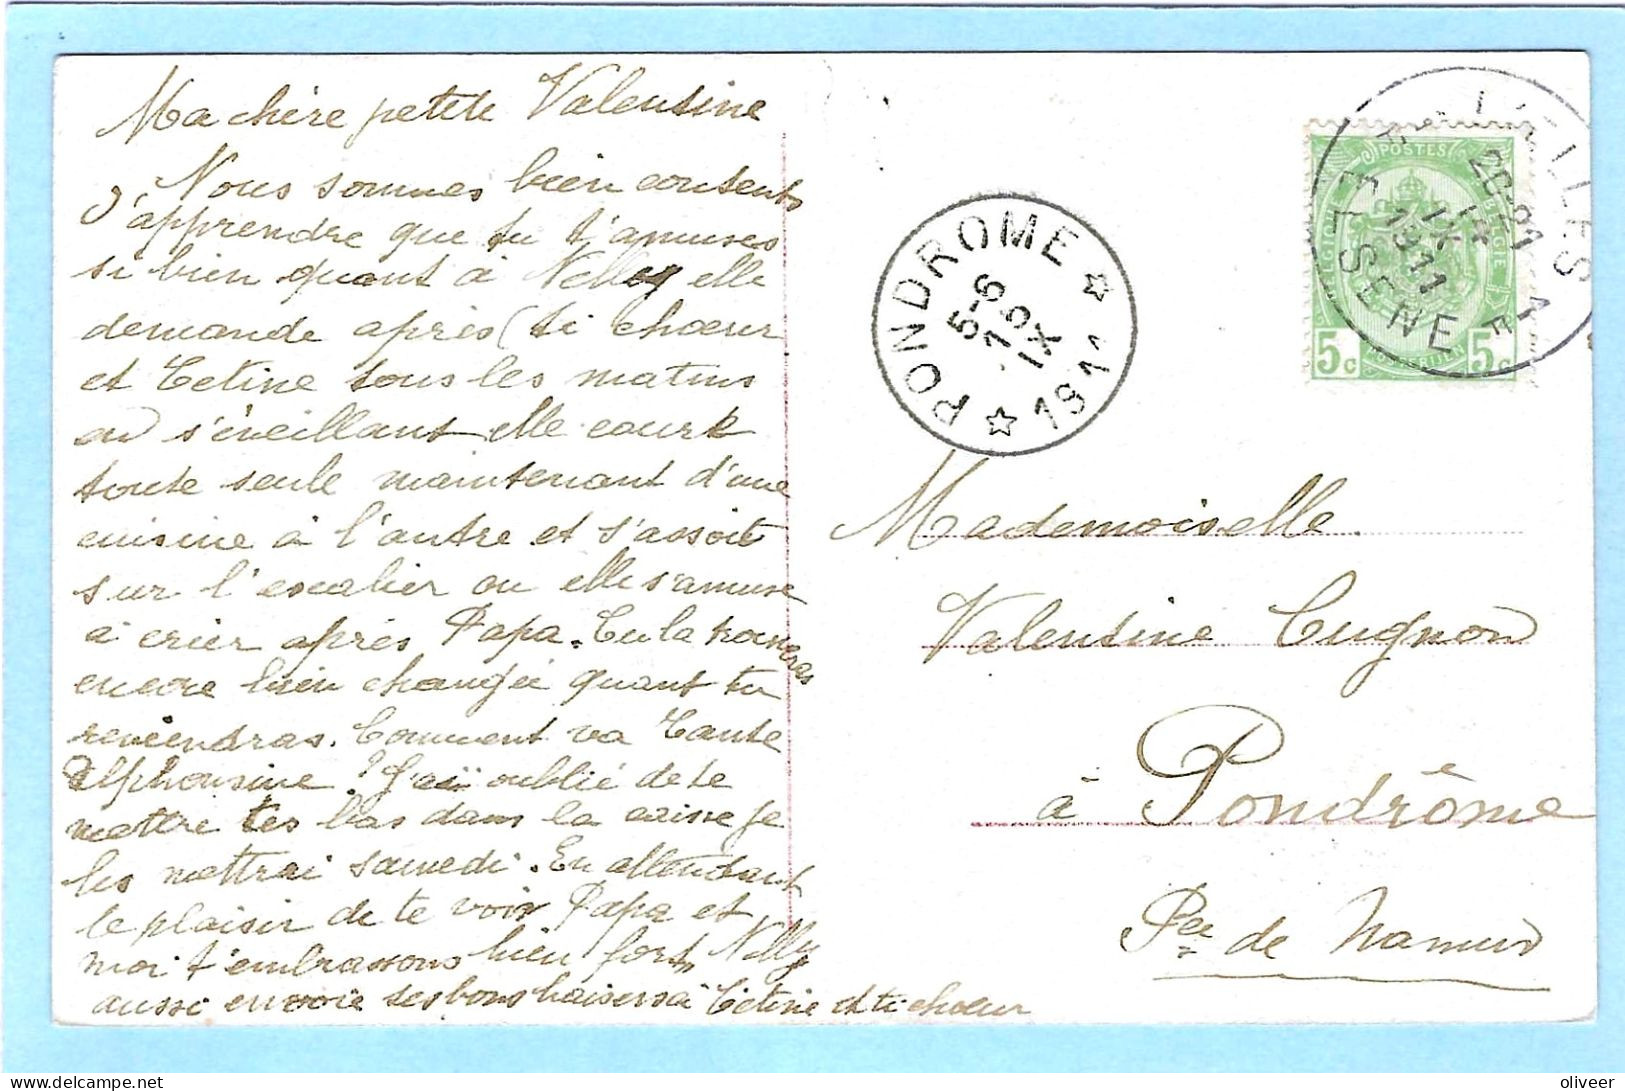 Ma chère petite Valentine
Nous sommes bien contents
d'apprendre que tu t'amuses
si bien quant à Nelly elle
demande après ti chœur
et Tetine tous les matins
en s'éveillant elle court
toute seule maintenant d'une
cuisine à l'autre et s'assoit
sur l'escalier ou elle s'amuse
à crier après Papa. Tu la trouveras
encore bien changée quant tu
reviendras. Comment va Tante
Alphonsine ? J'ai oublié de te
mettre tes bas dans la caisse je
les mettrai samedi. En attendant
le plaisir de te voir Papa et
moi t'embrassons bien fort, Nelly
aussi envoie ses bons baisers à Tetine et ti chœur
PONDROME
5-6
15
IX
1911
POSTES
BELGIQUE
BELGIE
POSTERIJEN
5c 5c
IX
1911
Mademoiselle
Valentine Cugnon
à Pondrôme
Pce de Namur
oliveer